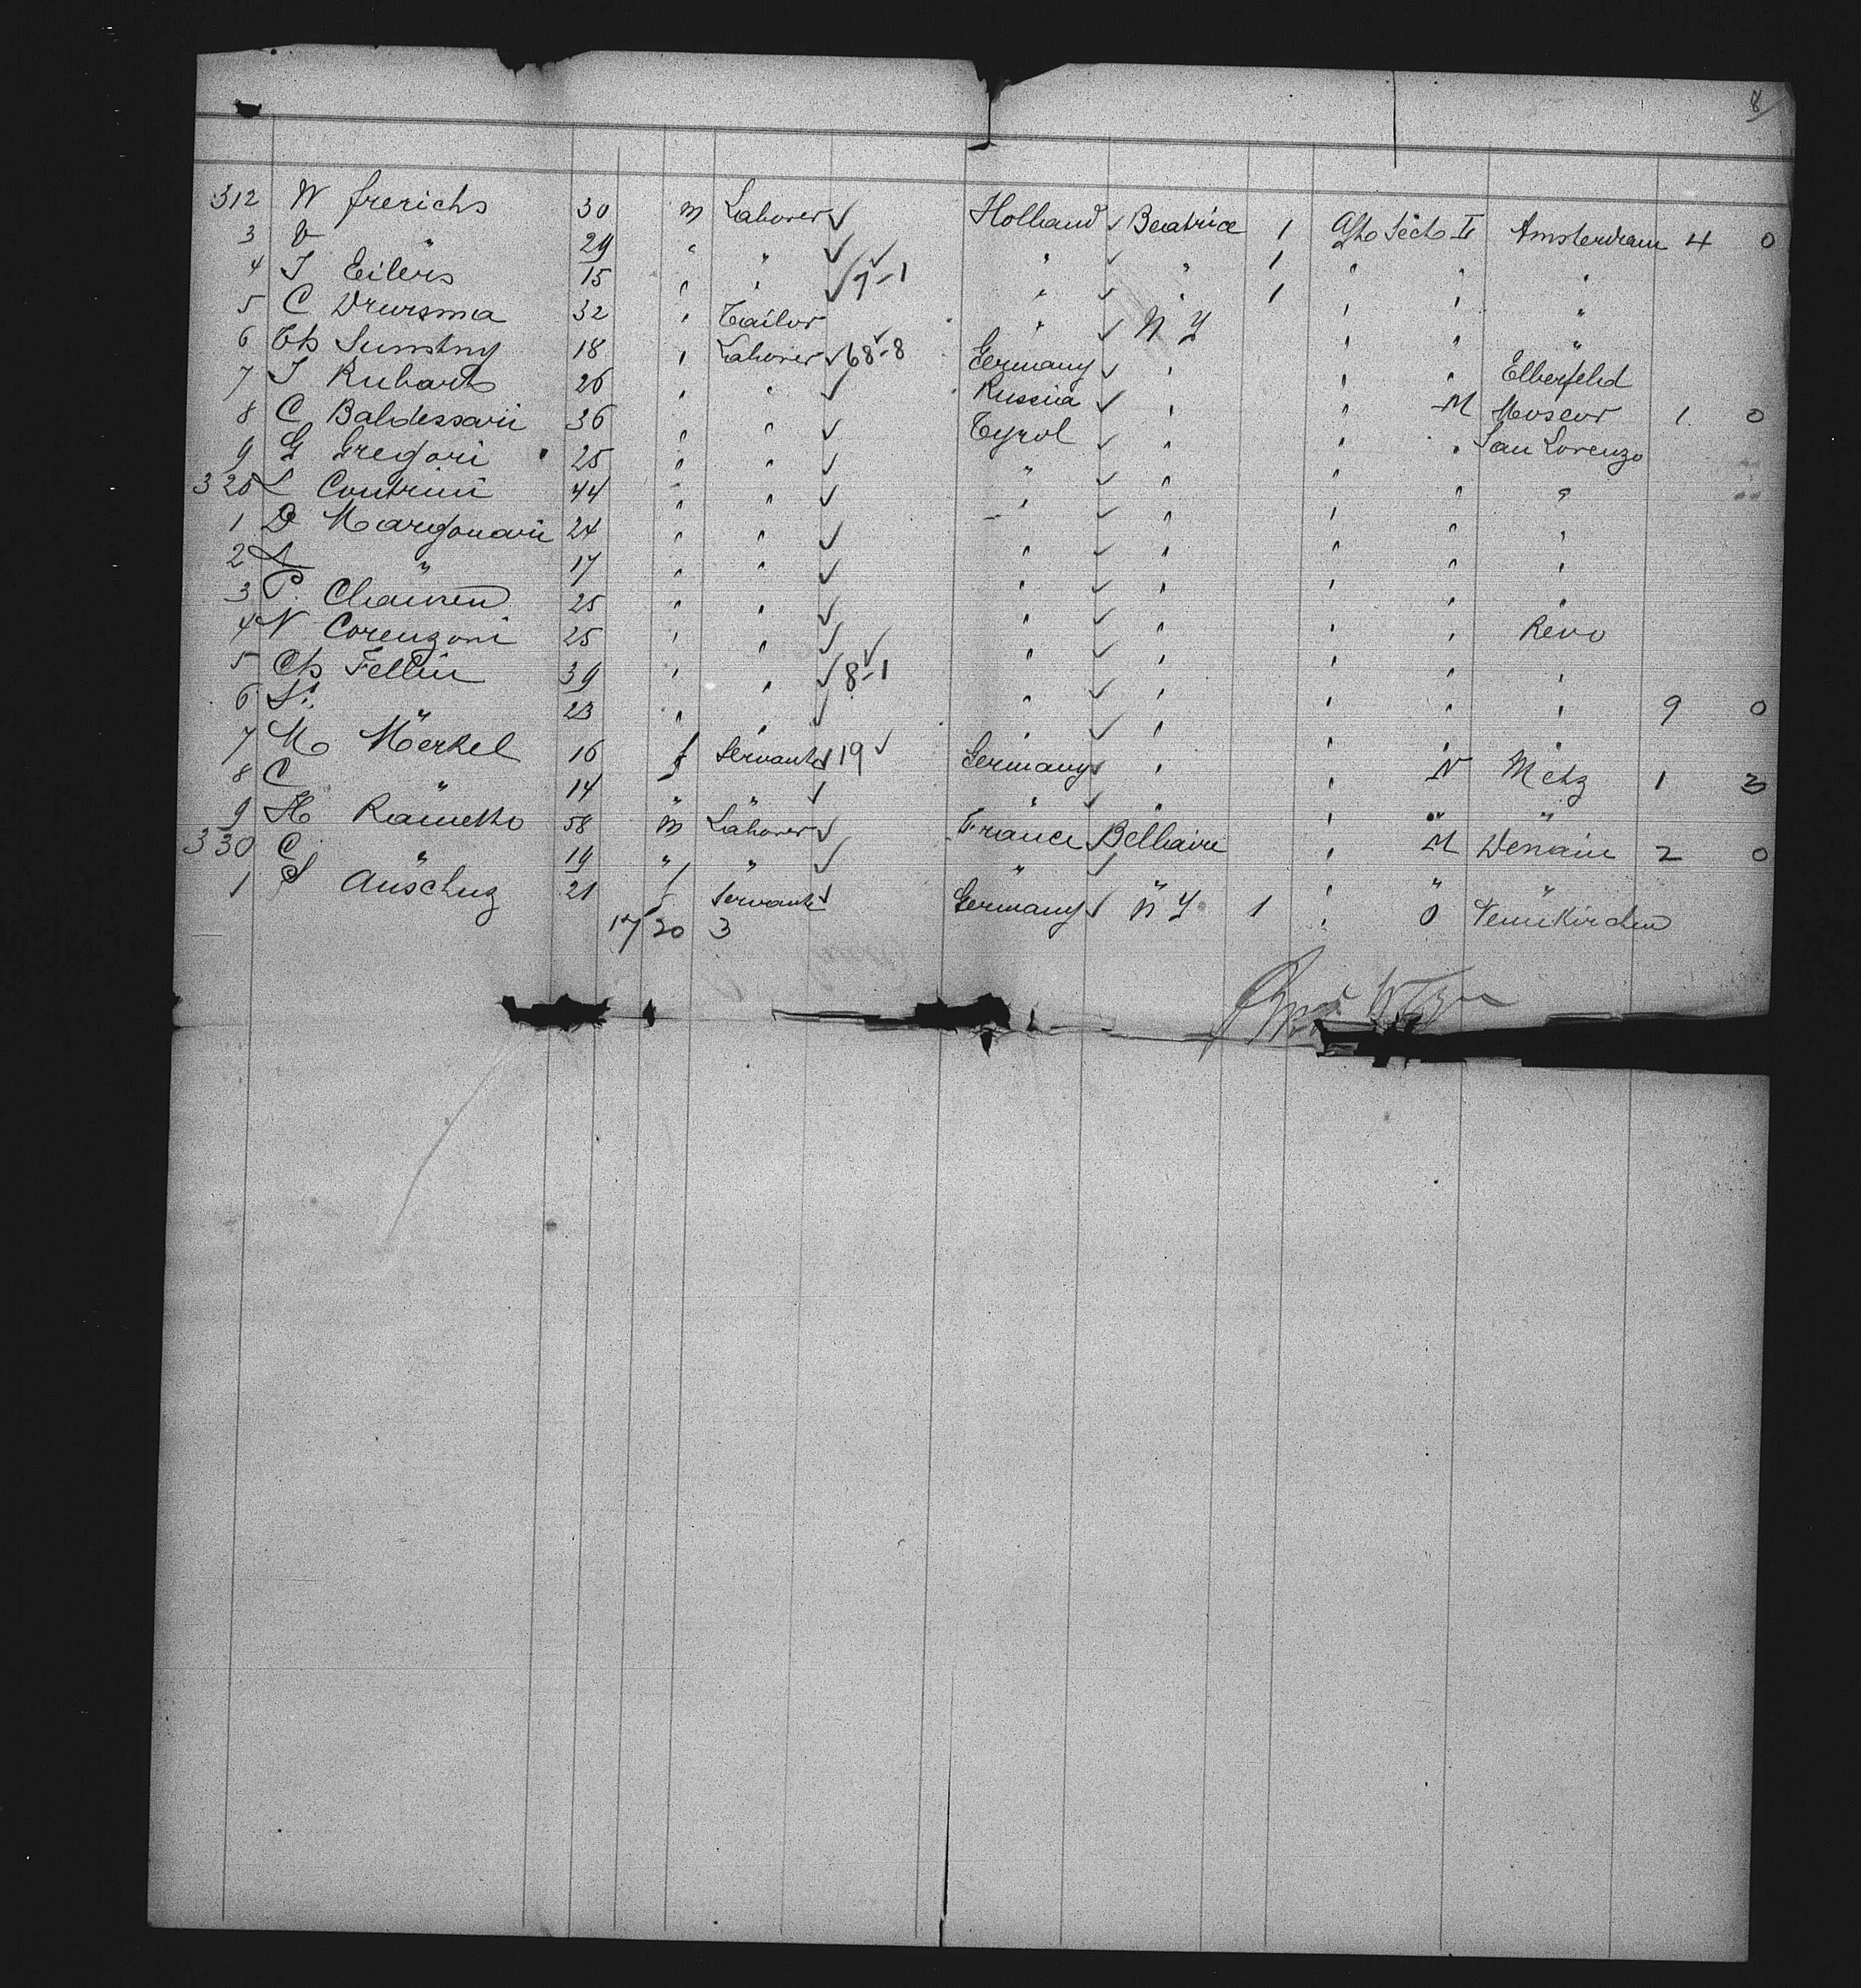 8
312 W Frerichs 30 m Laborer ✓ Holland ✓ Beatrice 1 Aft Sect II Amsterdam 4 0
3 " 29 " " ✓ " ✓ " 1 " " "
4 J Eilers 15 " " ✓ 7-1 " ✓ " 1 " " "
5 C Druisma 32 " Tailor " ✓ N Y " " "
6 Th 18 " Laborer ✓ 68-8 Germany ✓ " " " Elberfeld
7 J Rubarts 26 " " ✓ Russia ✓ " " M Moscow 1 0
8 C Baldessari 36 " " ✓ Tyrol ✓ " " " San Lorenzo
9 G Gregori 25 " " ✓ " ✓ " " " "
320 L Contrini 44 " " ✓ " ✓ " " " "
1 D Margonari 24 " " ✓ " ✓ " " " "
2 " 17 " " ✓ " ✓ " " " "
3 P. 25 " " ✓ " ✓ " " " Revo
4 N Corenzoni 25 " " ✓ " ✓ " " " "
5 Ch Fellin 39 " " ✓ 8-1 " ✓ " " " " 9 0
6 " 23 " " ✓ " ✓ " " " "
7 M Märkel 16 f Servant ✓ 19 Germany ✓ " " N Metz 1 3
8 C " 14 " " ✓ " ✓ " " " "
9 H 58 m Laborer ✓ France ✓ Bellaire " M Denain 2 0
330 C " 19 " " ✓ " ✓ " " " "
1 S Auschug 21 f Servant ✓ Germany ✓ N Y 1 " O
17 20 3